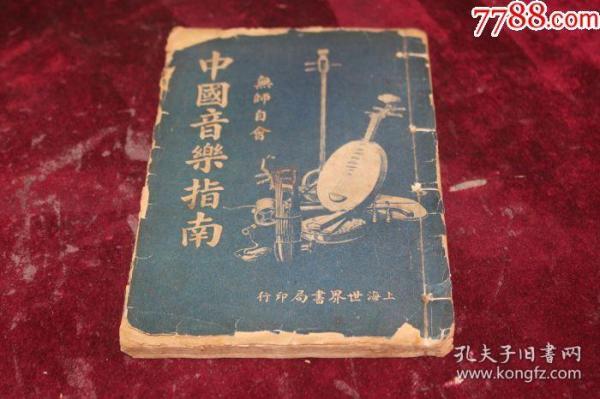 7788.com
中國音樂指南
無師自會
行印局書界世海上
孔夫子旧书网
www.kongfz.com